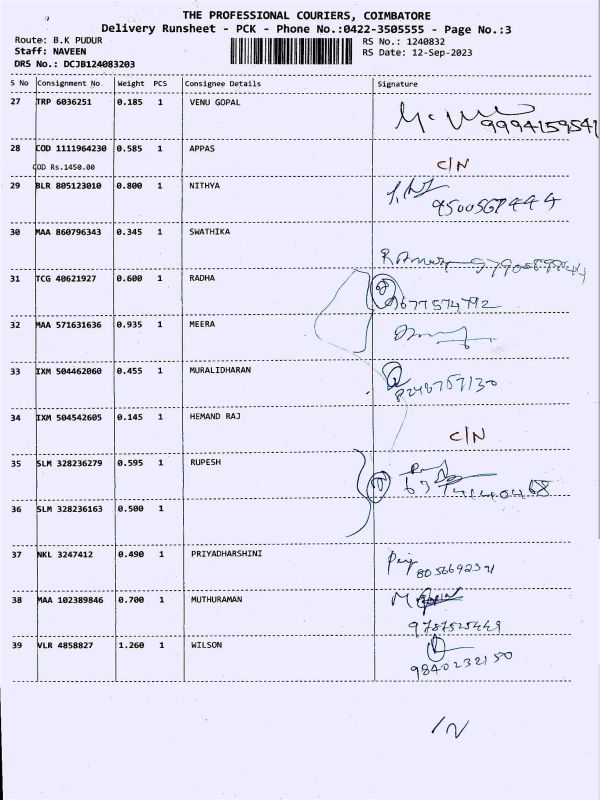 THE PROFESSIONAL COURIERS, COIMBATORE
Delivery Runsheet - PCK - Phone No.:0422-3505555 - Page No.:3
Route: B.K PUDUR
RS No.: 1240832
Staff: NAVEEN
RS Date: 12-Sep-2023
DRS No.: DCJB124083203
S No Consignment No. Weight PCS Consignee Details Signature
27 TRP 6036251 0.185 1 VENU GOPAL
9994159541
28 COD 1111964230 0.585 1 APPAS
COD Rs.1450.00 C/N
29 BLR 805123010 0.800 1 NITHYA
30 MAA 860796343 0.345 1 SWATHIKA
31 TCG 40621927 0.600 1 RADHA
9677574792
32 MAA 571631636 0.935 1 MEERA
33 IXM 504462060 0.455 1 MURALIDHARAN
8248757130
34 IXM 504542605 0.145 1 HEMAND RAJ
C/N
35 SLM 328236279 0.595 1 RUPESH
36 SLM 328236163 0.500 1
37 NKL 3247412 0.490 1 PRIYADHARSHINI
8056692391
38 MAA 102389846 0.700 1 MUTHURAMAN
9787525449
39 VLR 4858827 1.260 1 WILSON
9840232150